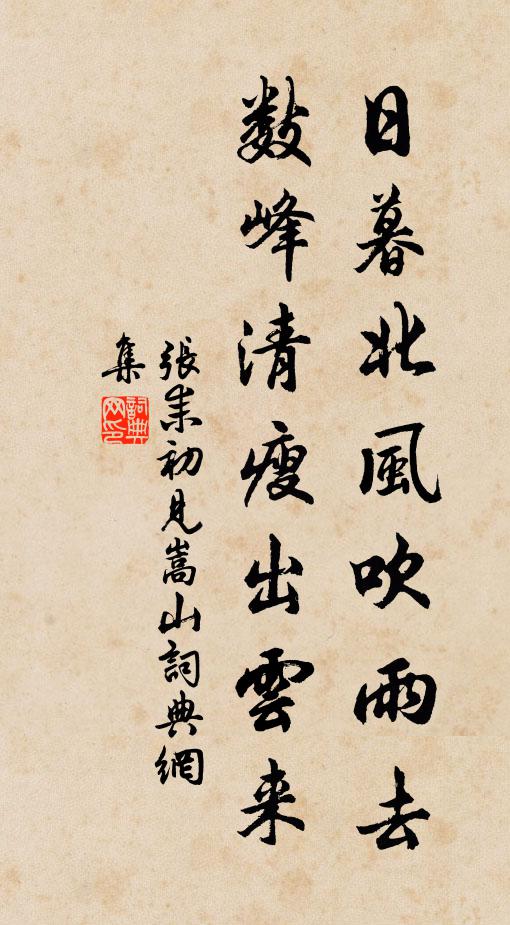 日暮北風吹雨去
數峰清瘦出雲来
張耒初見嵩山詞典網
集
詞典
网印